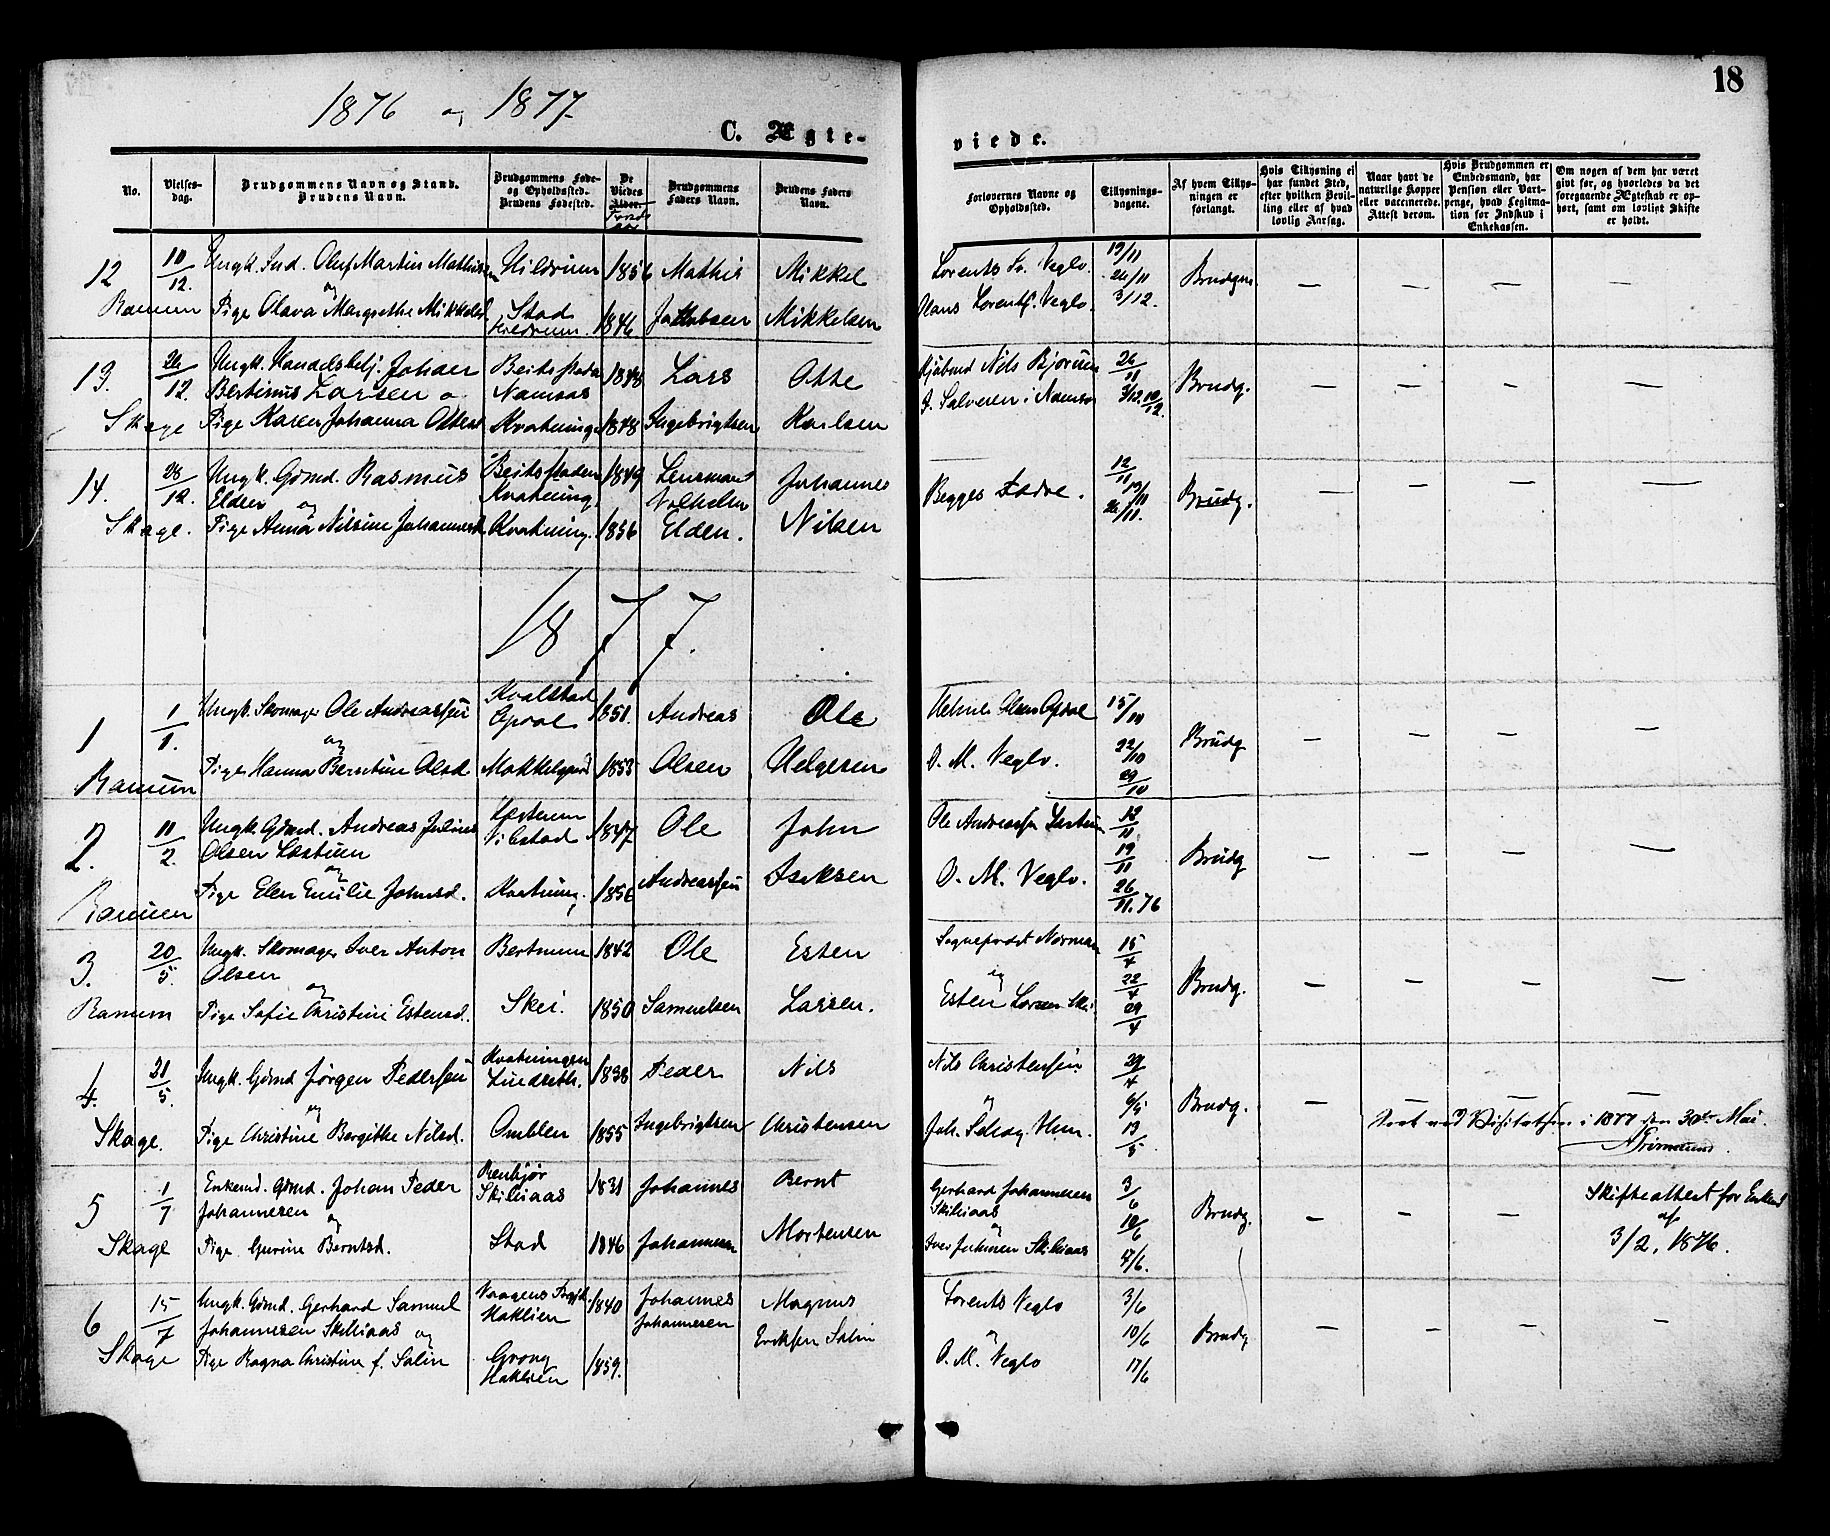 1876 og 1877.
C. Ægte-
viede.
18
No.
Vielses-
dag.
Brudgommens Navn og Stand.
Brudens Navn.
Brudgommens Føde-
og Opholdssted.
Brudens Fødested.
De
Viedes
Alder.
Brudgommens
Faders Navn.
Brudens Faders
Navn.
Forlovernes Navne og
Opholdssted.
Tillysnings-
dagene.
Af hvem Tillys-
ningen er
forlangt.
Hvis Tillysning ei
har fundet Sted,
efter hvilken Bevil-
ling eller af hvad
lovlig Aarsag.
Naar havt de
naturlige Kopper
eller vaccinerede.
Attest derom.
Hvis Brudgommen er
Embedsmand, har
Pension eller Vart-
penge, hvad Legitima-
tion for Indskud i
Enkekassen.
Om nogen af dem har været
givt før, og hvorledes da det
foregaaende Ægteskab er op-
hørt, samt om lovligt Skifte
er holdt.
12
Ranum
10/12.
Ungk. Ind. Oluf Martin Mathisen
og
Pige Olava Margrethe Mikkelsd.
Hildrum
Stad
Hildrum.
1856
1846
Mathis
Jakobsen
Mikkel
Mikkelsen
Lorents Veglo.
Hans Lorents. Veglo.
19/11
26/11
3/12.
Brudgm
13.
Skage
26/12.
Ungk. Handelsbetj. Johan
Bertinus Larsen o
Pige Karen Johanna Ottesd
Beitstaden
Namsos
Kvatninge
1848
1848
Lars
Ingebrigtsen
Otte
Karlsen
Nils Bjørum
J. Salvesen i Namsos
26/11
3/12. 10/12.
Brudg.
14.
Skage.
28/12
Ungk. Gmd. Rasmus
Elden og
Pige Anna Nilsine Johannesd.
Beitstaden
Kvatning.
Kvatning.
1849
1856
Lensmand
Elden.
Johannes
Nilsen
Begges Fædre.
12/11
19/11
26/11.
Brudg.
1877.
1
Ranum
1/1.
Ungk. Skomager Ole Andreassen
og
Pige Hanna Berntine Olsd
Kvalstad
Opdal
1851.
1853
Andreas
Olsen
Ole
Helgesen
Helmer Olsen Opdal
O. M. Veglo.
15/10
22/10
29/10
Brudg
2.
Ranum
11/2.
Ungk. Gaard. Andreas Julius
Olsen Læstum
og
Pige Elen Emilie Johnsd.
Vibstad
Kvatning,
1847
1856
Ole
Andreassen
John
Isaksen
Ole Andreassen Læstum
O. M. Veglo.
12/11
19/11
26/11. 76
Brudg
3.
Ranum
20/5.
Ungk. Skomager Iver Anton
Olsen
og
Pige Sofie Christine Estensd.
Bertnem
Skei.
1842
1850
Ole
Samuelsen
Esten
Larsen.
Sogneprest Norman
og
Esten Larsen Skei
15/4
22/4
29/4
Brudg.
4.
Skage.
31/5.
Ungk. Gaard Jørgen Pedersen
og
Pige Christine Bergitte Nilsd.
Kvatningen
Lindseth.
Omblen
1838
1855
Peder
Ingebrigtsen
Nils
Christensen
Nils Christensen
og
29/4
6/5
13/5
Brudg.
Seet ved Visitatsen i 1877 den 30te Mai.
5
Skage
1/7
Enkemd. Gaard. Johan Peder
Johannesen
og
Pige. Gurine Berntsd.
Skiliaas
Stad
1831
1846
Johannes
Johannesen
Bernt
Mortensen
Gerhard Johannesen
Skiliaas
og
Iver Johnsen Skiliaas
3/6
10/6
17/6.
Brudg.
Skifteattest for Enkemd
af
3/2. 1876.
6
Skage
15/7
Ungk. Gaard. Gerhard Samuel
Johannesen Skiliaas og
Pige Ragna Christine f. Salin
Haklien
Grong
Haklien
1840
1859.
Johannes
Johannesen
Magnus
Eriksen Salin
Lorents Veglo
og
O. M. Veglo
3/6
10/6
17/6
Brudg